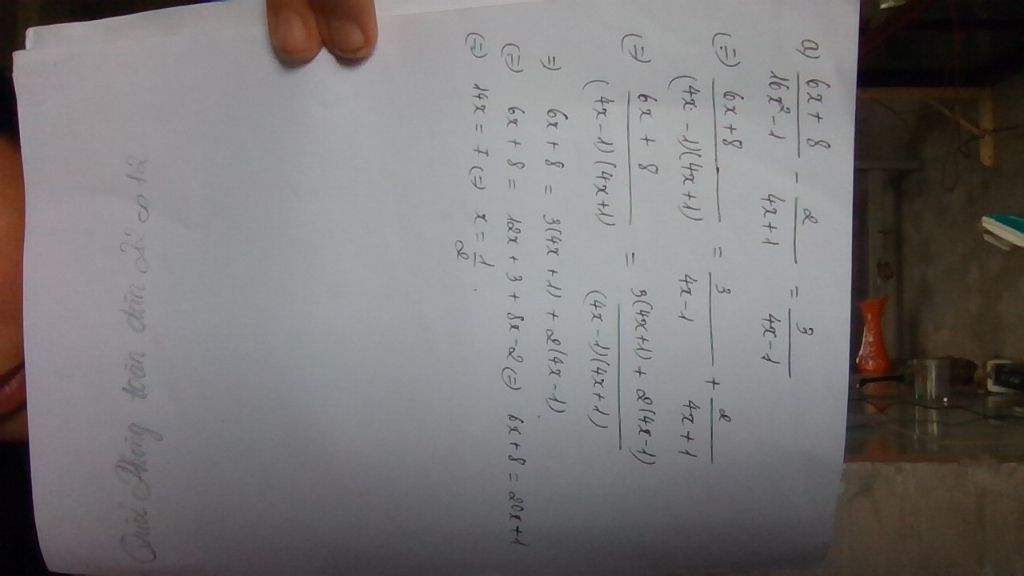 a) 6x + 8 / 16x² - 1 - 2 / 4x + 1 = 3 / 4x - 1
(=) 6x + 8 / (4x - 1)(4x + 1) = 3 / 4x - 1 + 2 / 4x + 1
(=) 6x + 8 / (4x - 1)(4x + 1) = 3(4x + 1) + 2(4x - 1) / (4x - 1)(4x + 1)
=) 6x + 8 = 3(4x + 1) + 2(4x - 1)
(=) 6x + 8 = 12x + 3 + 8x - 2 (=) 6x + 8 = 20x + 1
(=) 14x = 7 (=) x = 1 / 2 .
toàn dân